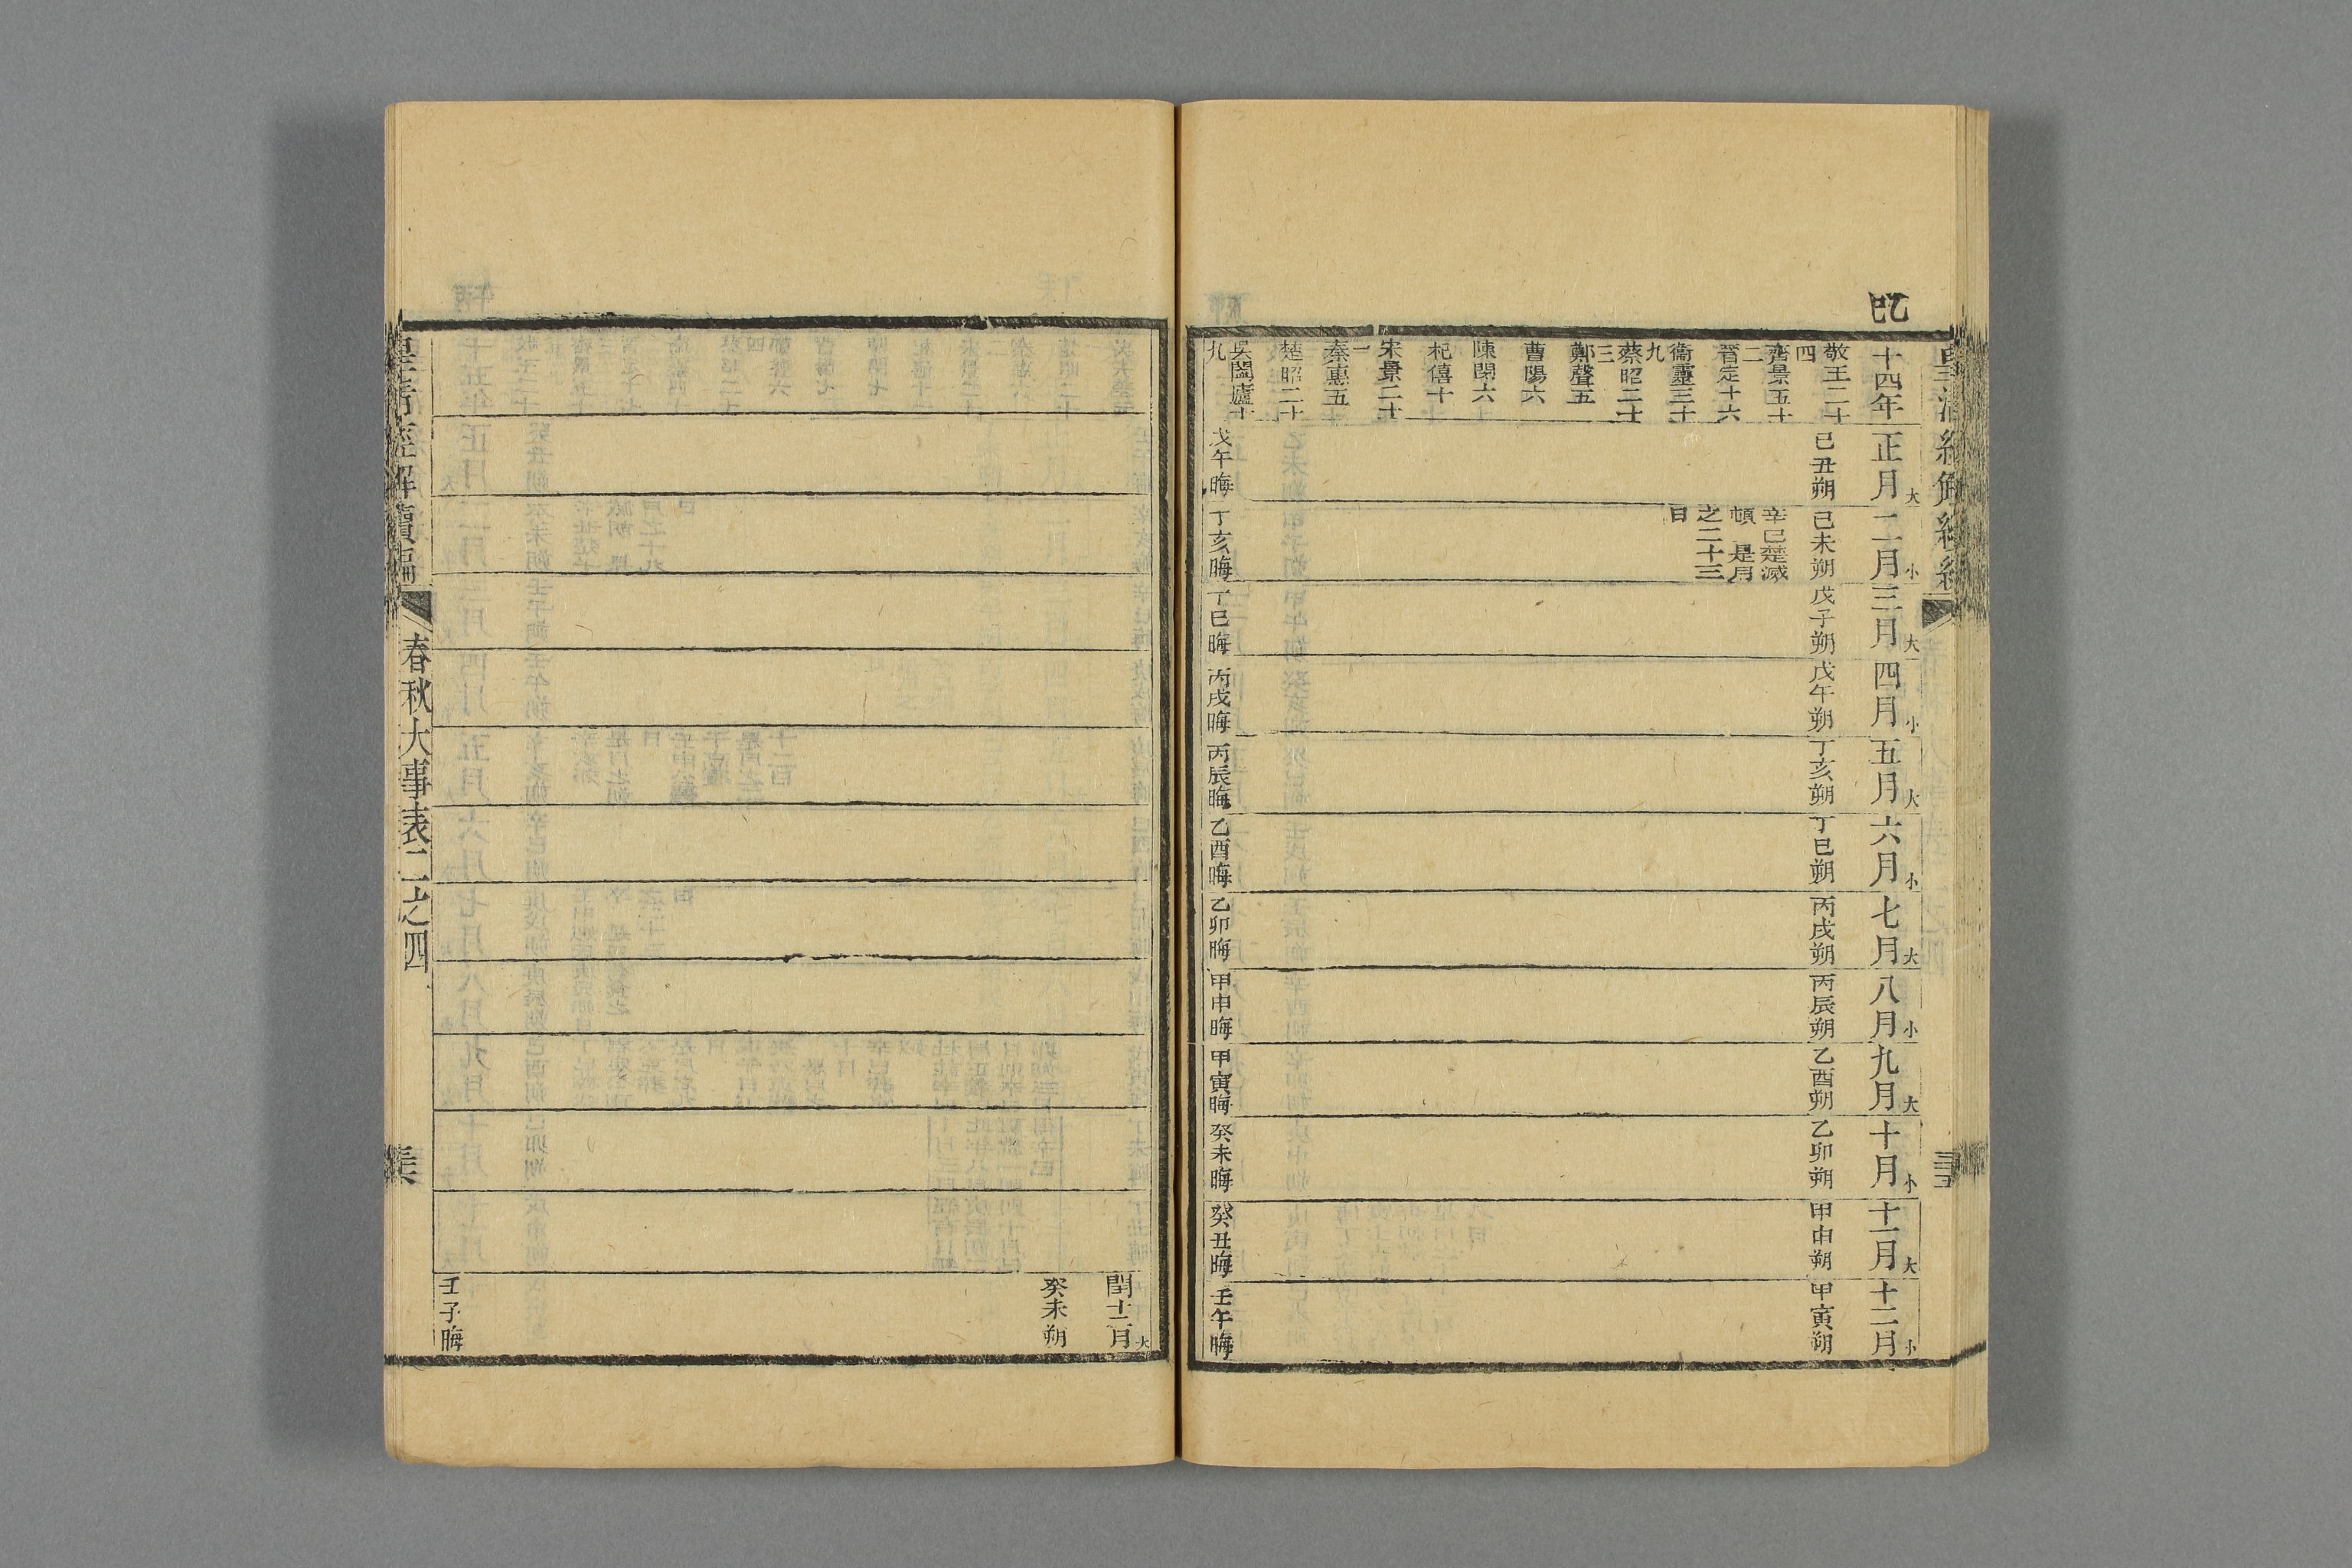 乙巳
十四年
敬王二十
四
齊景五十
二
晉定十六
衞靈三十
九
蔡昭二十
三
鄭聲五
曹陽六
陳閔六
杞僖十
宋景二十
一
秦惠五
楚昭二十
吳闔廬十
九
正月大
己丑朔
戊午晦
二月小
己未朔
辛巳楚滅
頓　是月
之二十三
日
丁亥晦
三月大
戊子朔
丁巳晦
四月小
戊午朔
丙戌晦
五月大
丁亥朔
丙辰晦
六月小
丁巳朔
乙酉晦
七月大
丙戌朔
乙卯晦
八月小
丙辰朔
甲申晦
九月大
乙酉朔
甲寅晦
十月小
乙卯朔
癸未晦
十一月大
甲申朔
癸丑晦
十二月小
甲寅朔
壬午晦
閏十二月大
癸未朔
壬子晦
皇清經解續編
春秋大事表二之四